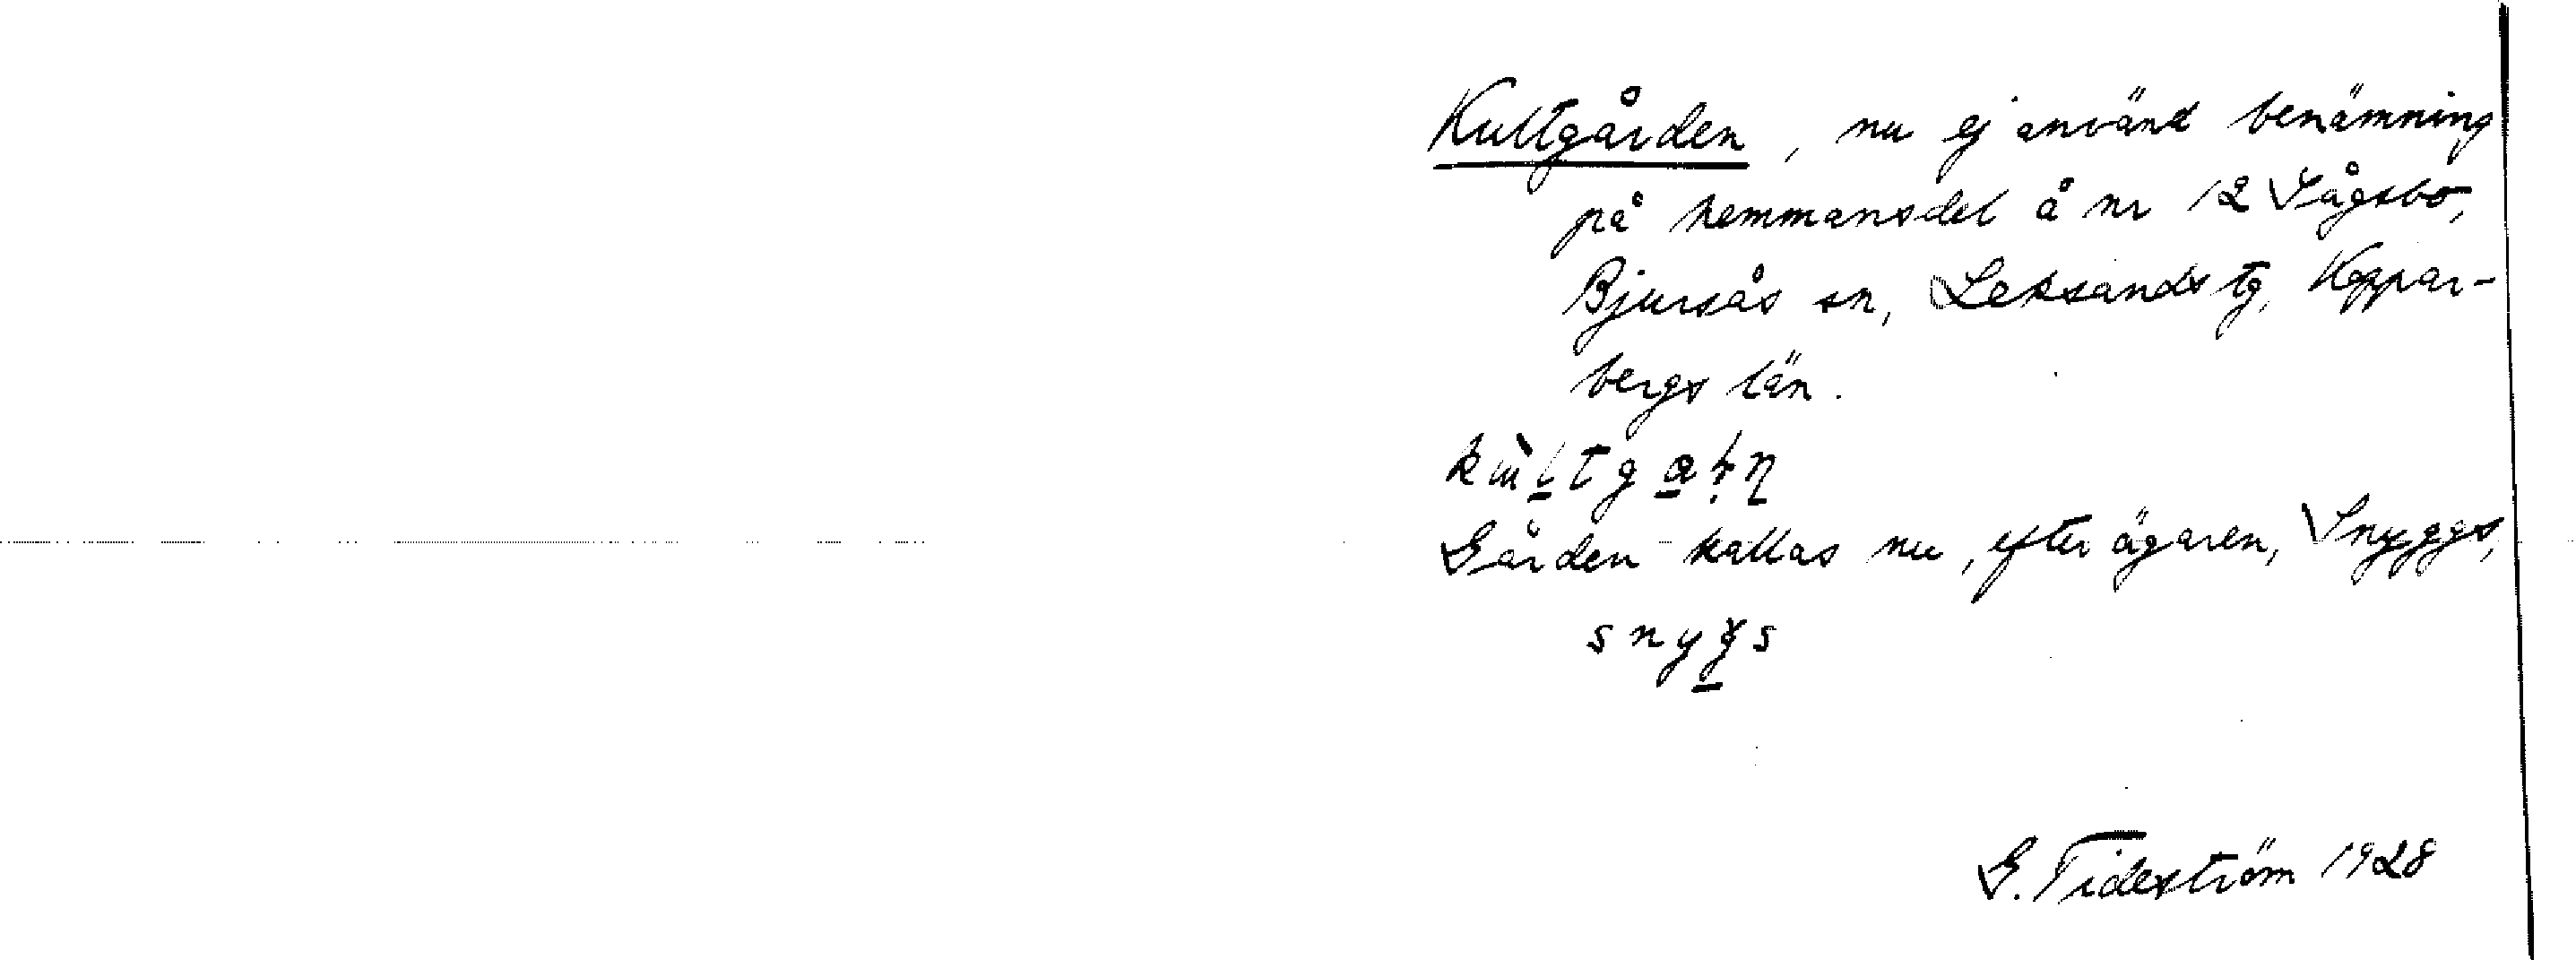 Kultgården, nu ej använd benämning
på hemmansdel å nr 12 Sågsbo,
Bjursås sn, Leksands tg, Koppar-
bergs län.
Gården kallas nu, efter ägaren, Snyggs,
G. Tideström 1928